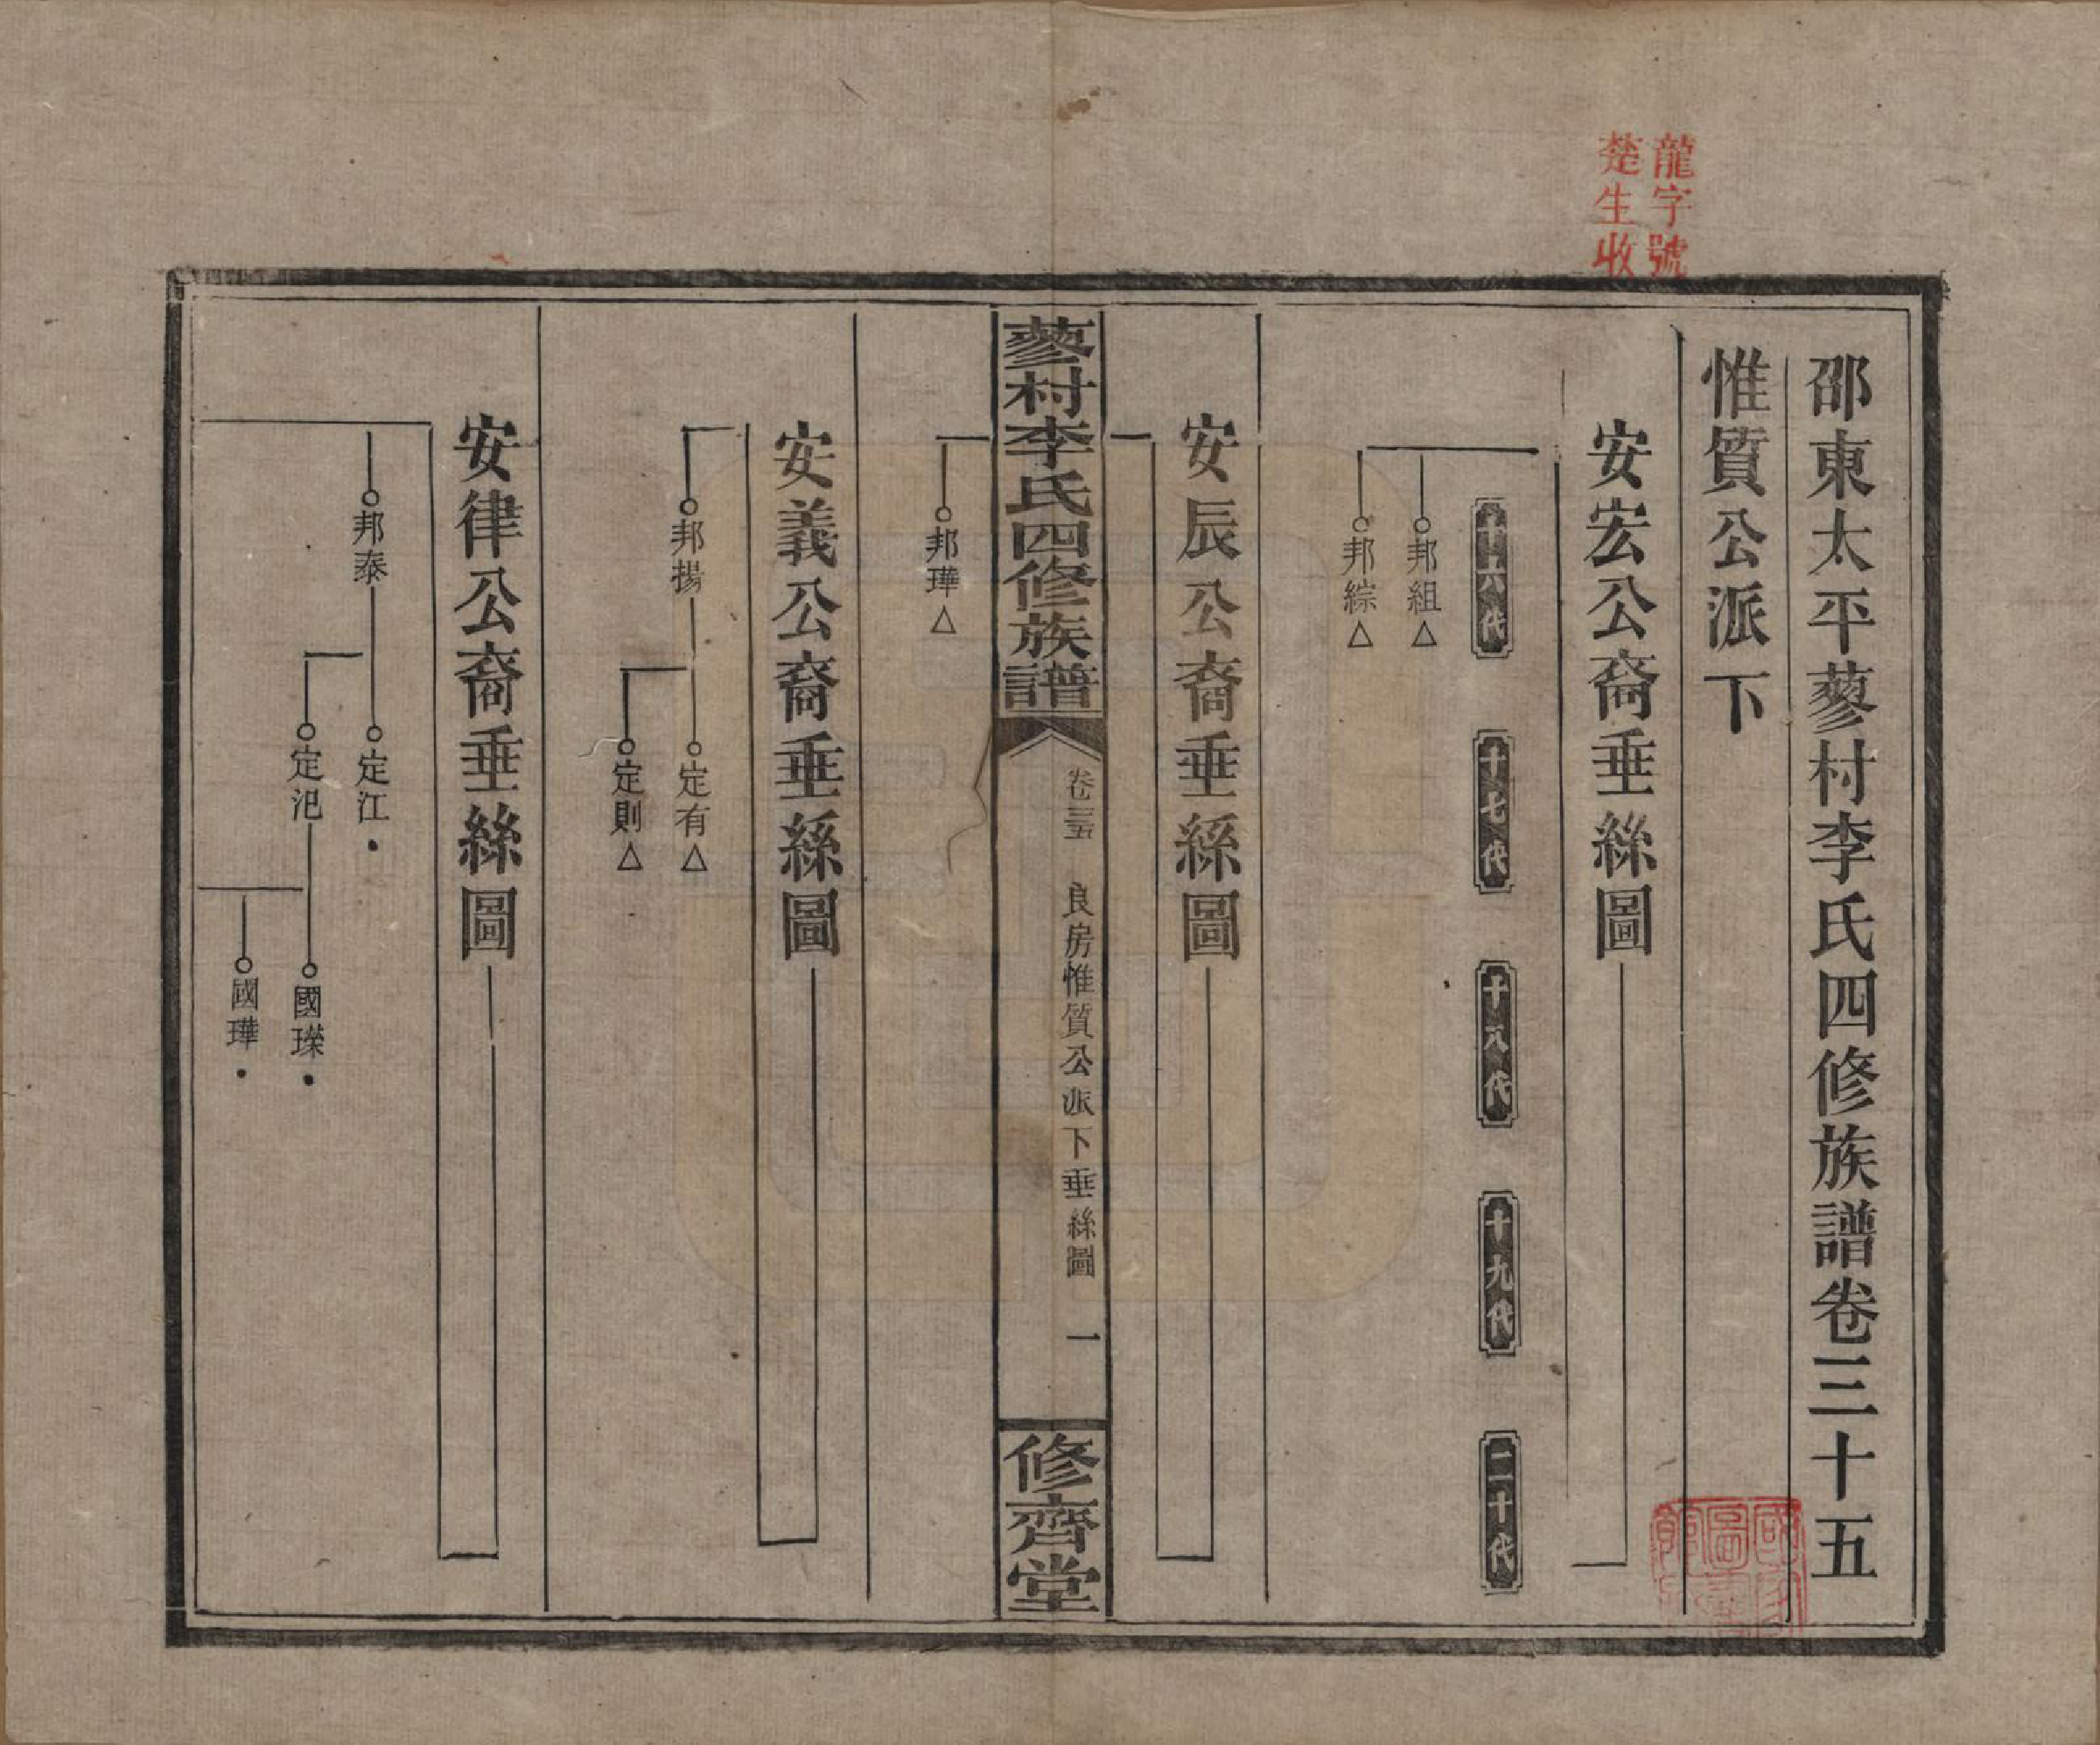 龍字號
楚生收
邵東太平蓼村李氏四修族譜卷三十五
惟質公派下
安宏公裔垂絲圖
十六代
十七代
十八代
十九代
二十代
邦組△
邦綜△
安辰公裔垂絲圖
蓼村李氏四修族譜
卷三十五
良房惟質公派下垂絲圖
一
修齊堂
邦瑋△
安義公裔垂絲圖
邦揚
定有△
定則△
安律公裔垂絲圖
邦泰
定江•
定汜
國瑮•
國瑋•